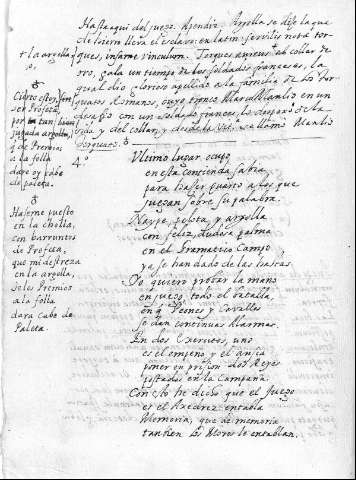 Hasta aqui del juego. Ajendix. Argolla se dize la que
de hierro lleva el esclavo: en latin servilis nota tor-
ques, infame vinculum. Torques aureus el collar de
oro, gala un tiempo de los soldados franceses, la
qual dio glorioso apellido a la familia de los Tor-
quatos Romanos, cuyo tronco Manlio en un
desafio con un soldado frances, le despojo de la
vida y del collar, y desde se llamò Manlio
Torquato.
+ la argolla
Cierto estoy
ser Profeta
por tan bien
jugada argolla,
q de Premios
a la folla
dare oy cabo
de paleta.
Haseme puesto
en la cholla,
con barruntos
de Profeta,
que mi destreza
en la argolla,
de los Premios
a la folla
dara cabo de
Paleta.
4º
Ultimo lugar ocupo
en esta contienda sabia
para hazer quarto a los que
juegan sobre su palabra.
Naype, pelota, y argolla
con feliz, dudosa palma
en el Gramatico Campo
ya se han dado de las hastas.
Yo quiero probar la mano
en juego, todo el batalla,
en q Peones y Cavallos
se dan continuas Alarmas.
En dos Exercitos, uno
es el empeño, y el ansia
poner en prision dos Reyes
apostados en la Campaña.
Con esto he dicho que el Juego
es el Axedrez: entabla
Memoria, que de memoria
tambien los Moros le entablan.